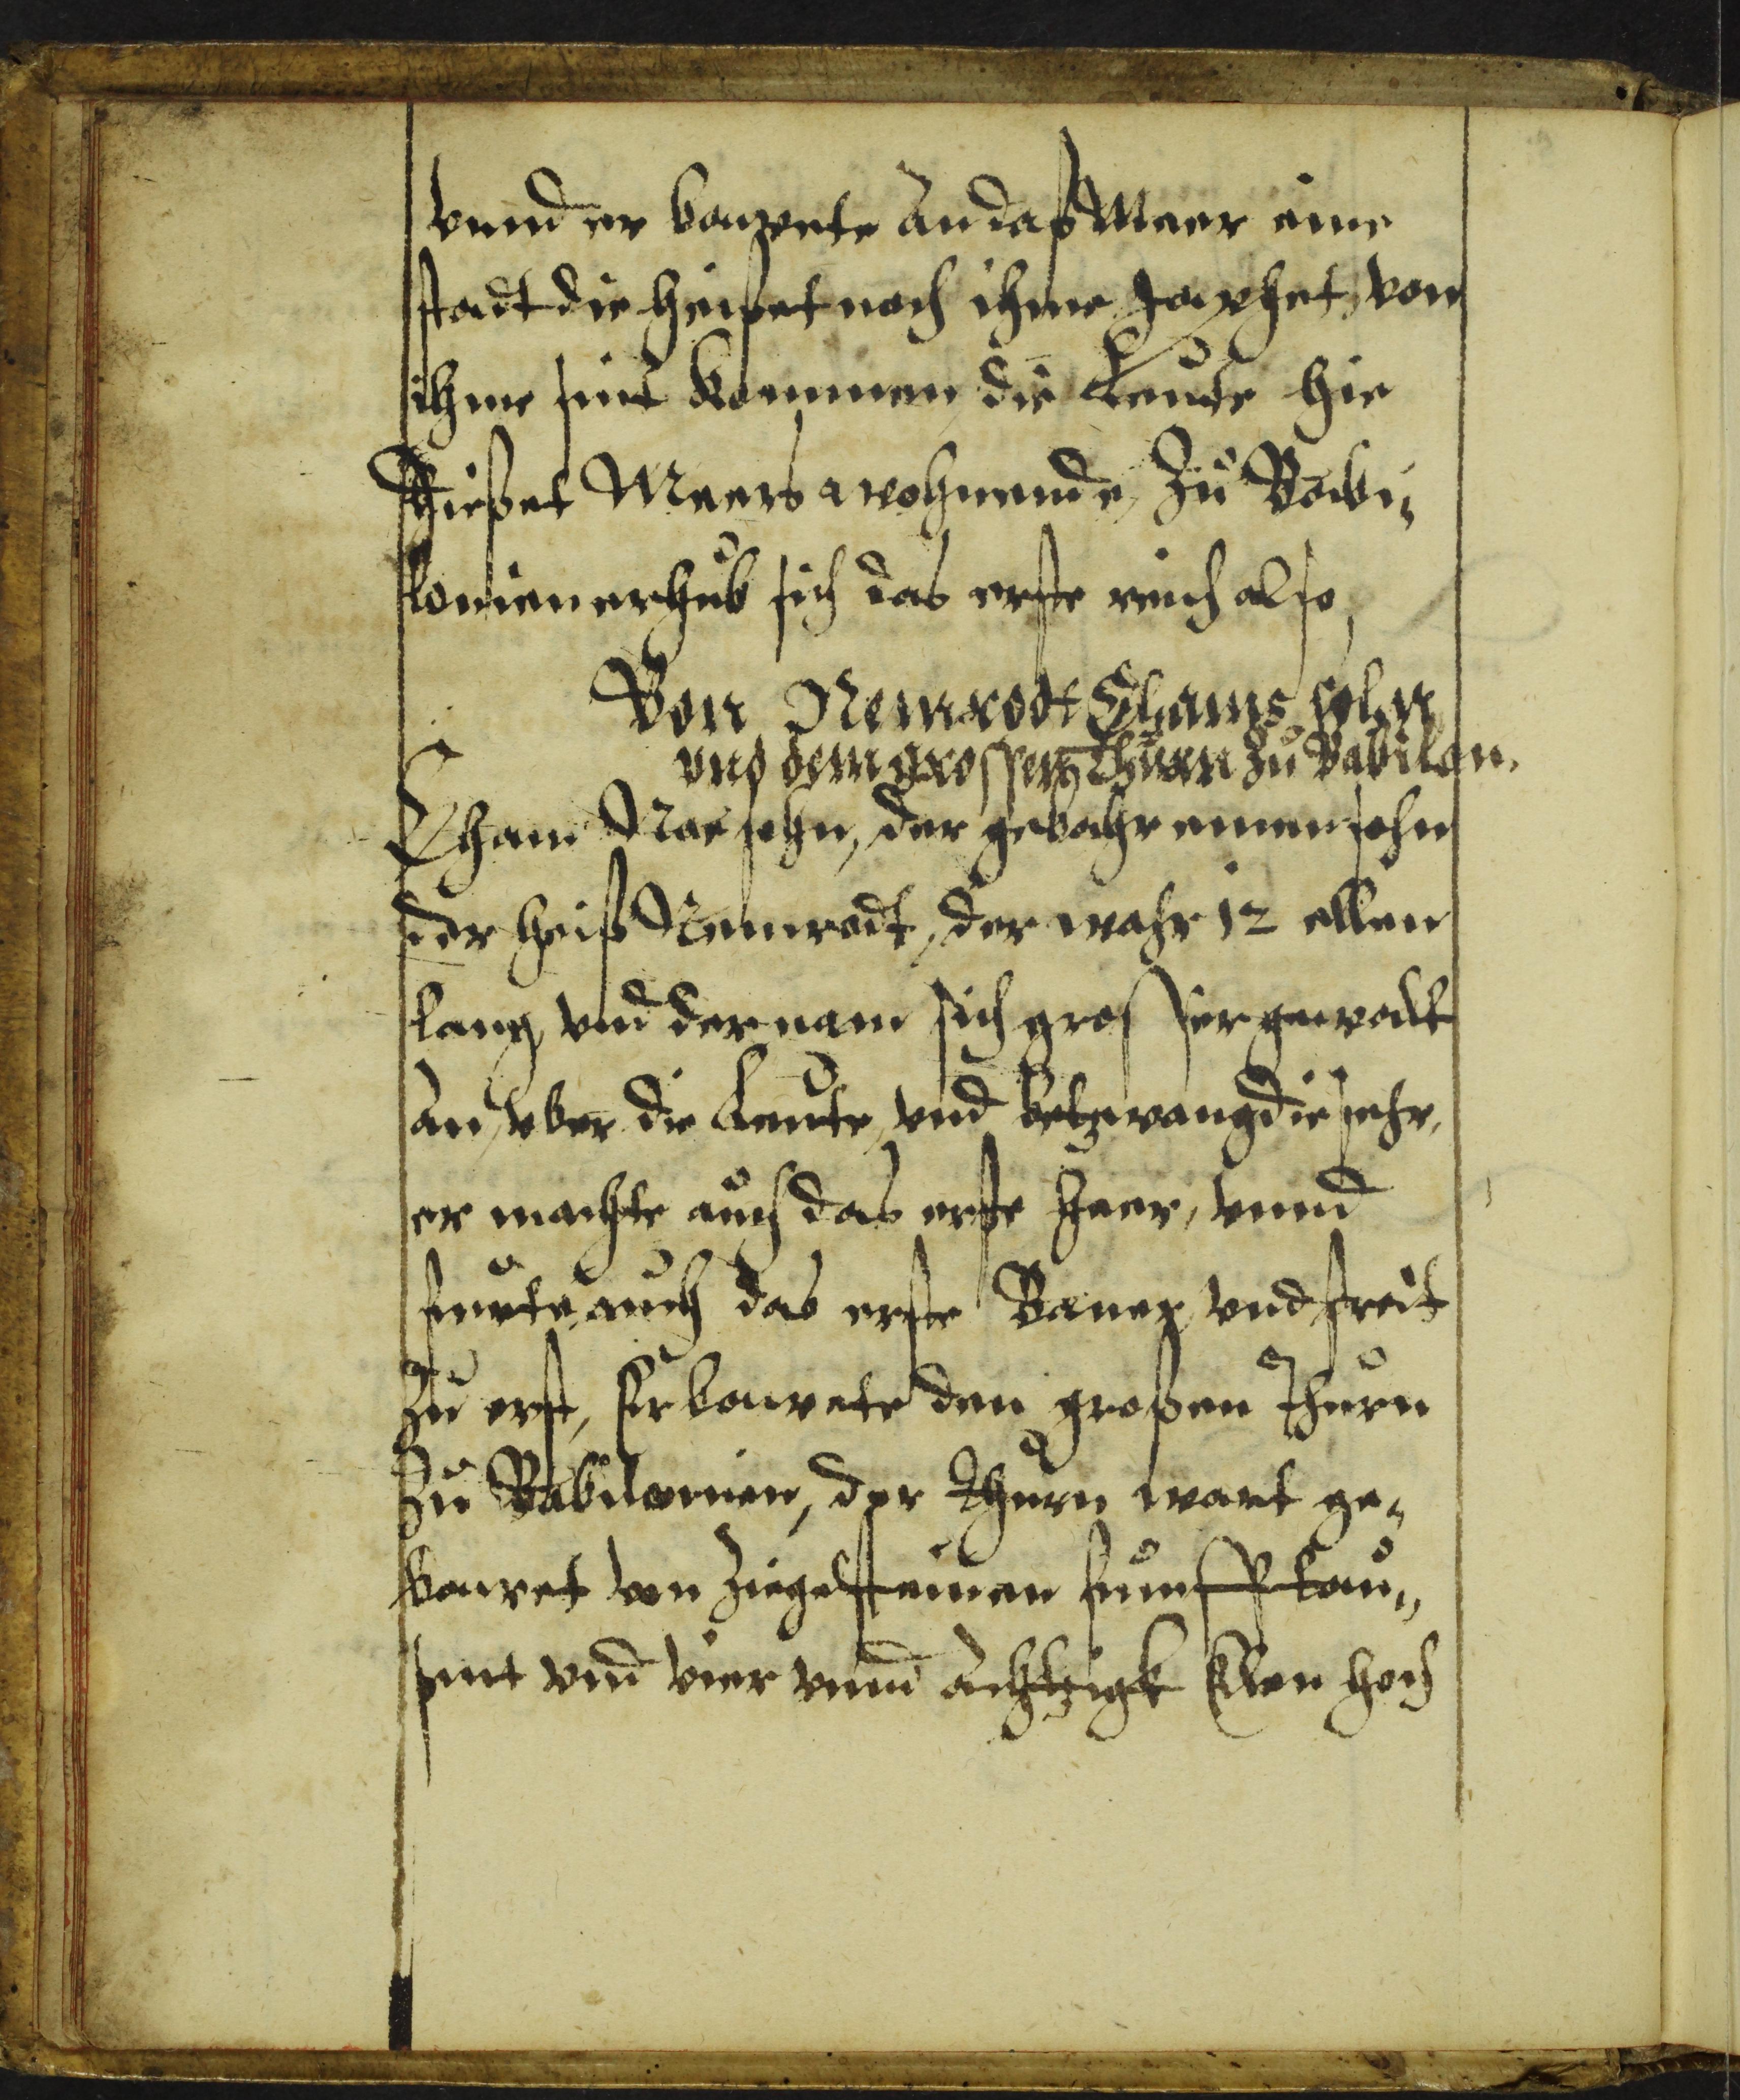 vnnd er bauwete an daß Meer eine
stadt die heißet nach ihme Japhet, von
ihme sint kommen die Leute hie
thießet Meers wohnende, Zu Babi-
lonien erhub sich das erste reich also,
Von Nemrodt Chams sohn
vnd dem grossen Thurn zu Babilon.
Cham Noe sohn, der gebahr einen sohn
der heiß Nemrodt, der wahr 12 ellen
lang, vnd der nam sich grosser gewalt
an, vber die Leute, vnd betzwang die sehr,
er machte auch das erste Heer, vnnd
fuerte auch das erste Baner, vnd streit
zu erst, Er bauwete den großen Thurn
zu Babilonien, der Thurn wart ge-
bauwet von Ziegelsteinen funff tau-
sent vnd vier vnnd achtzigk Elen hoch